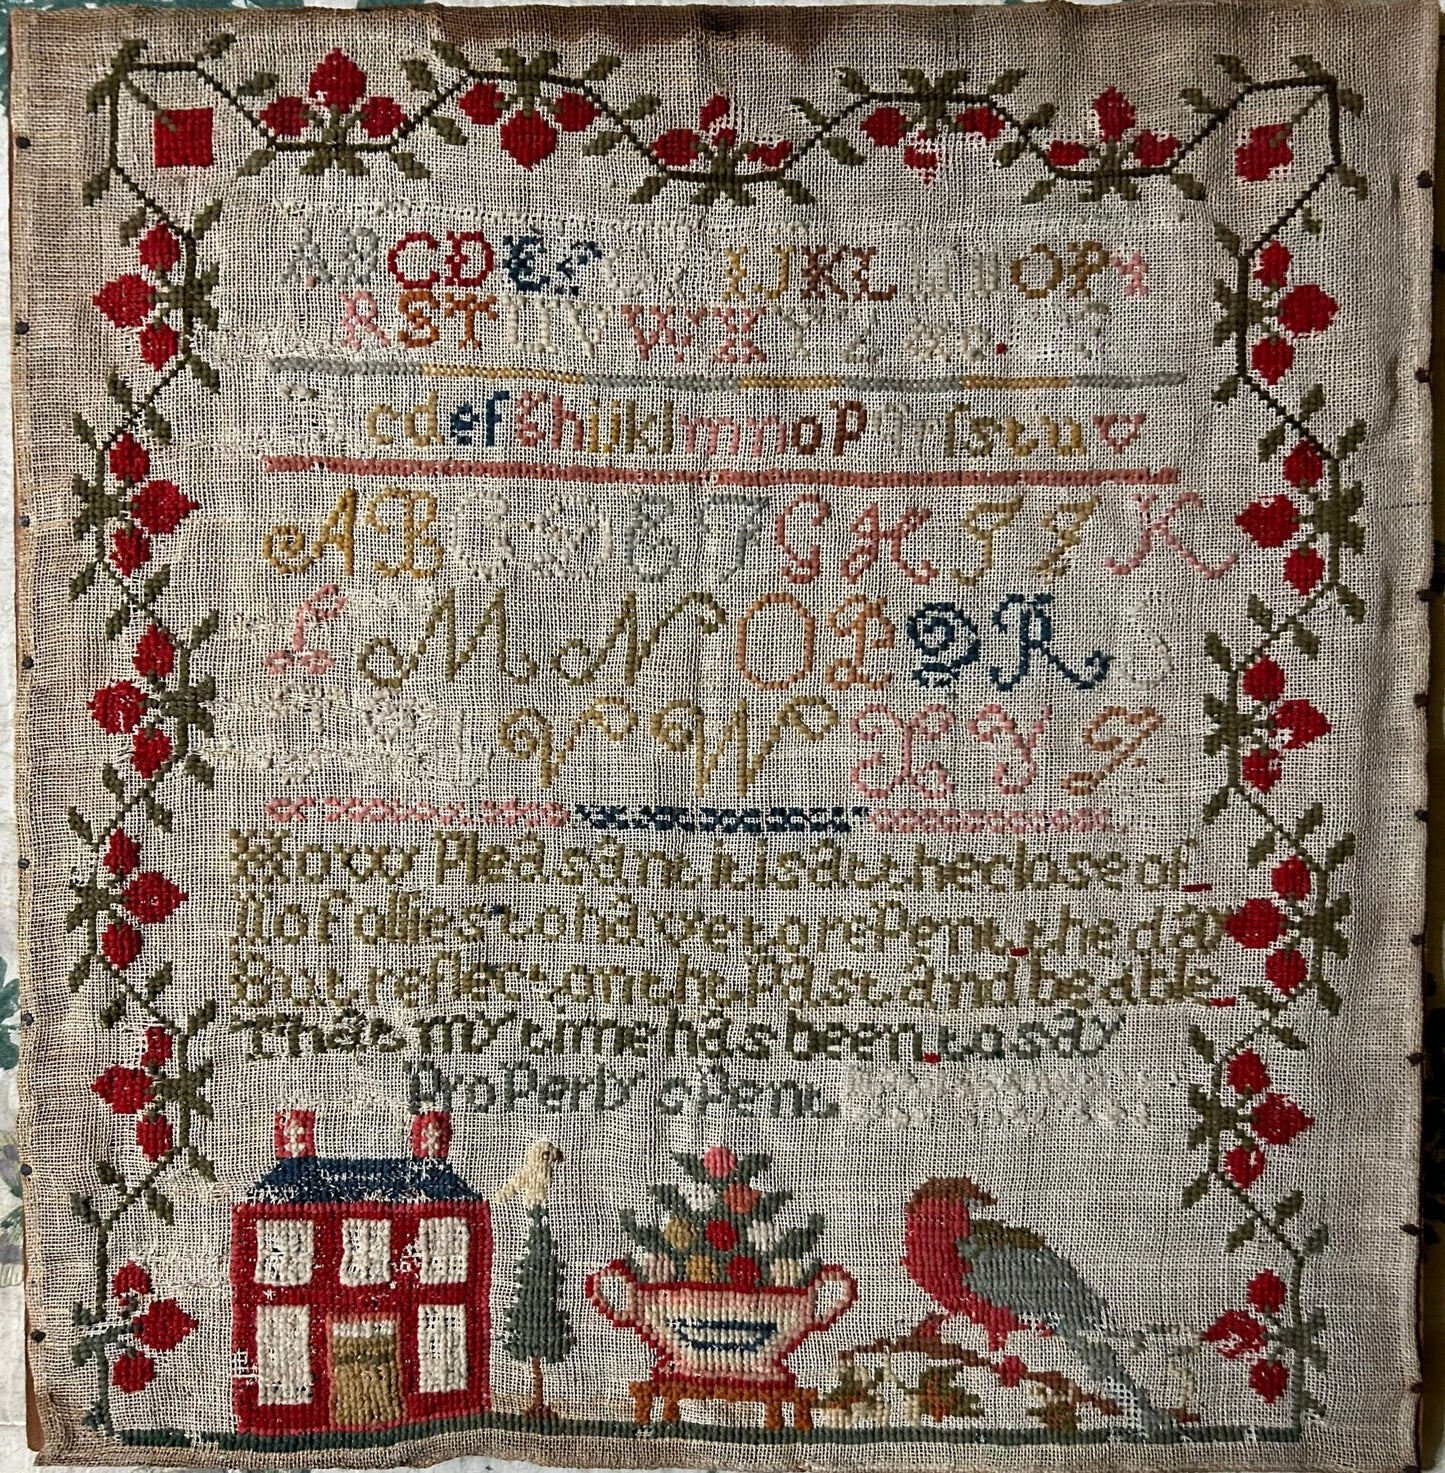 A B C D E F G I J K L M N O P
R S T U V W X Y Z &c.
c d e f g h i j k l m n o p q r ſ s t u
A B C D E F G H I J K
L M N O P Q R S
T U V W X Y Z
How Pleasant it is at the close of
No follies to have to rePent the day
But reflect on the Past and be able
That my time has been to say
ProPerly sPent